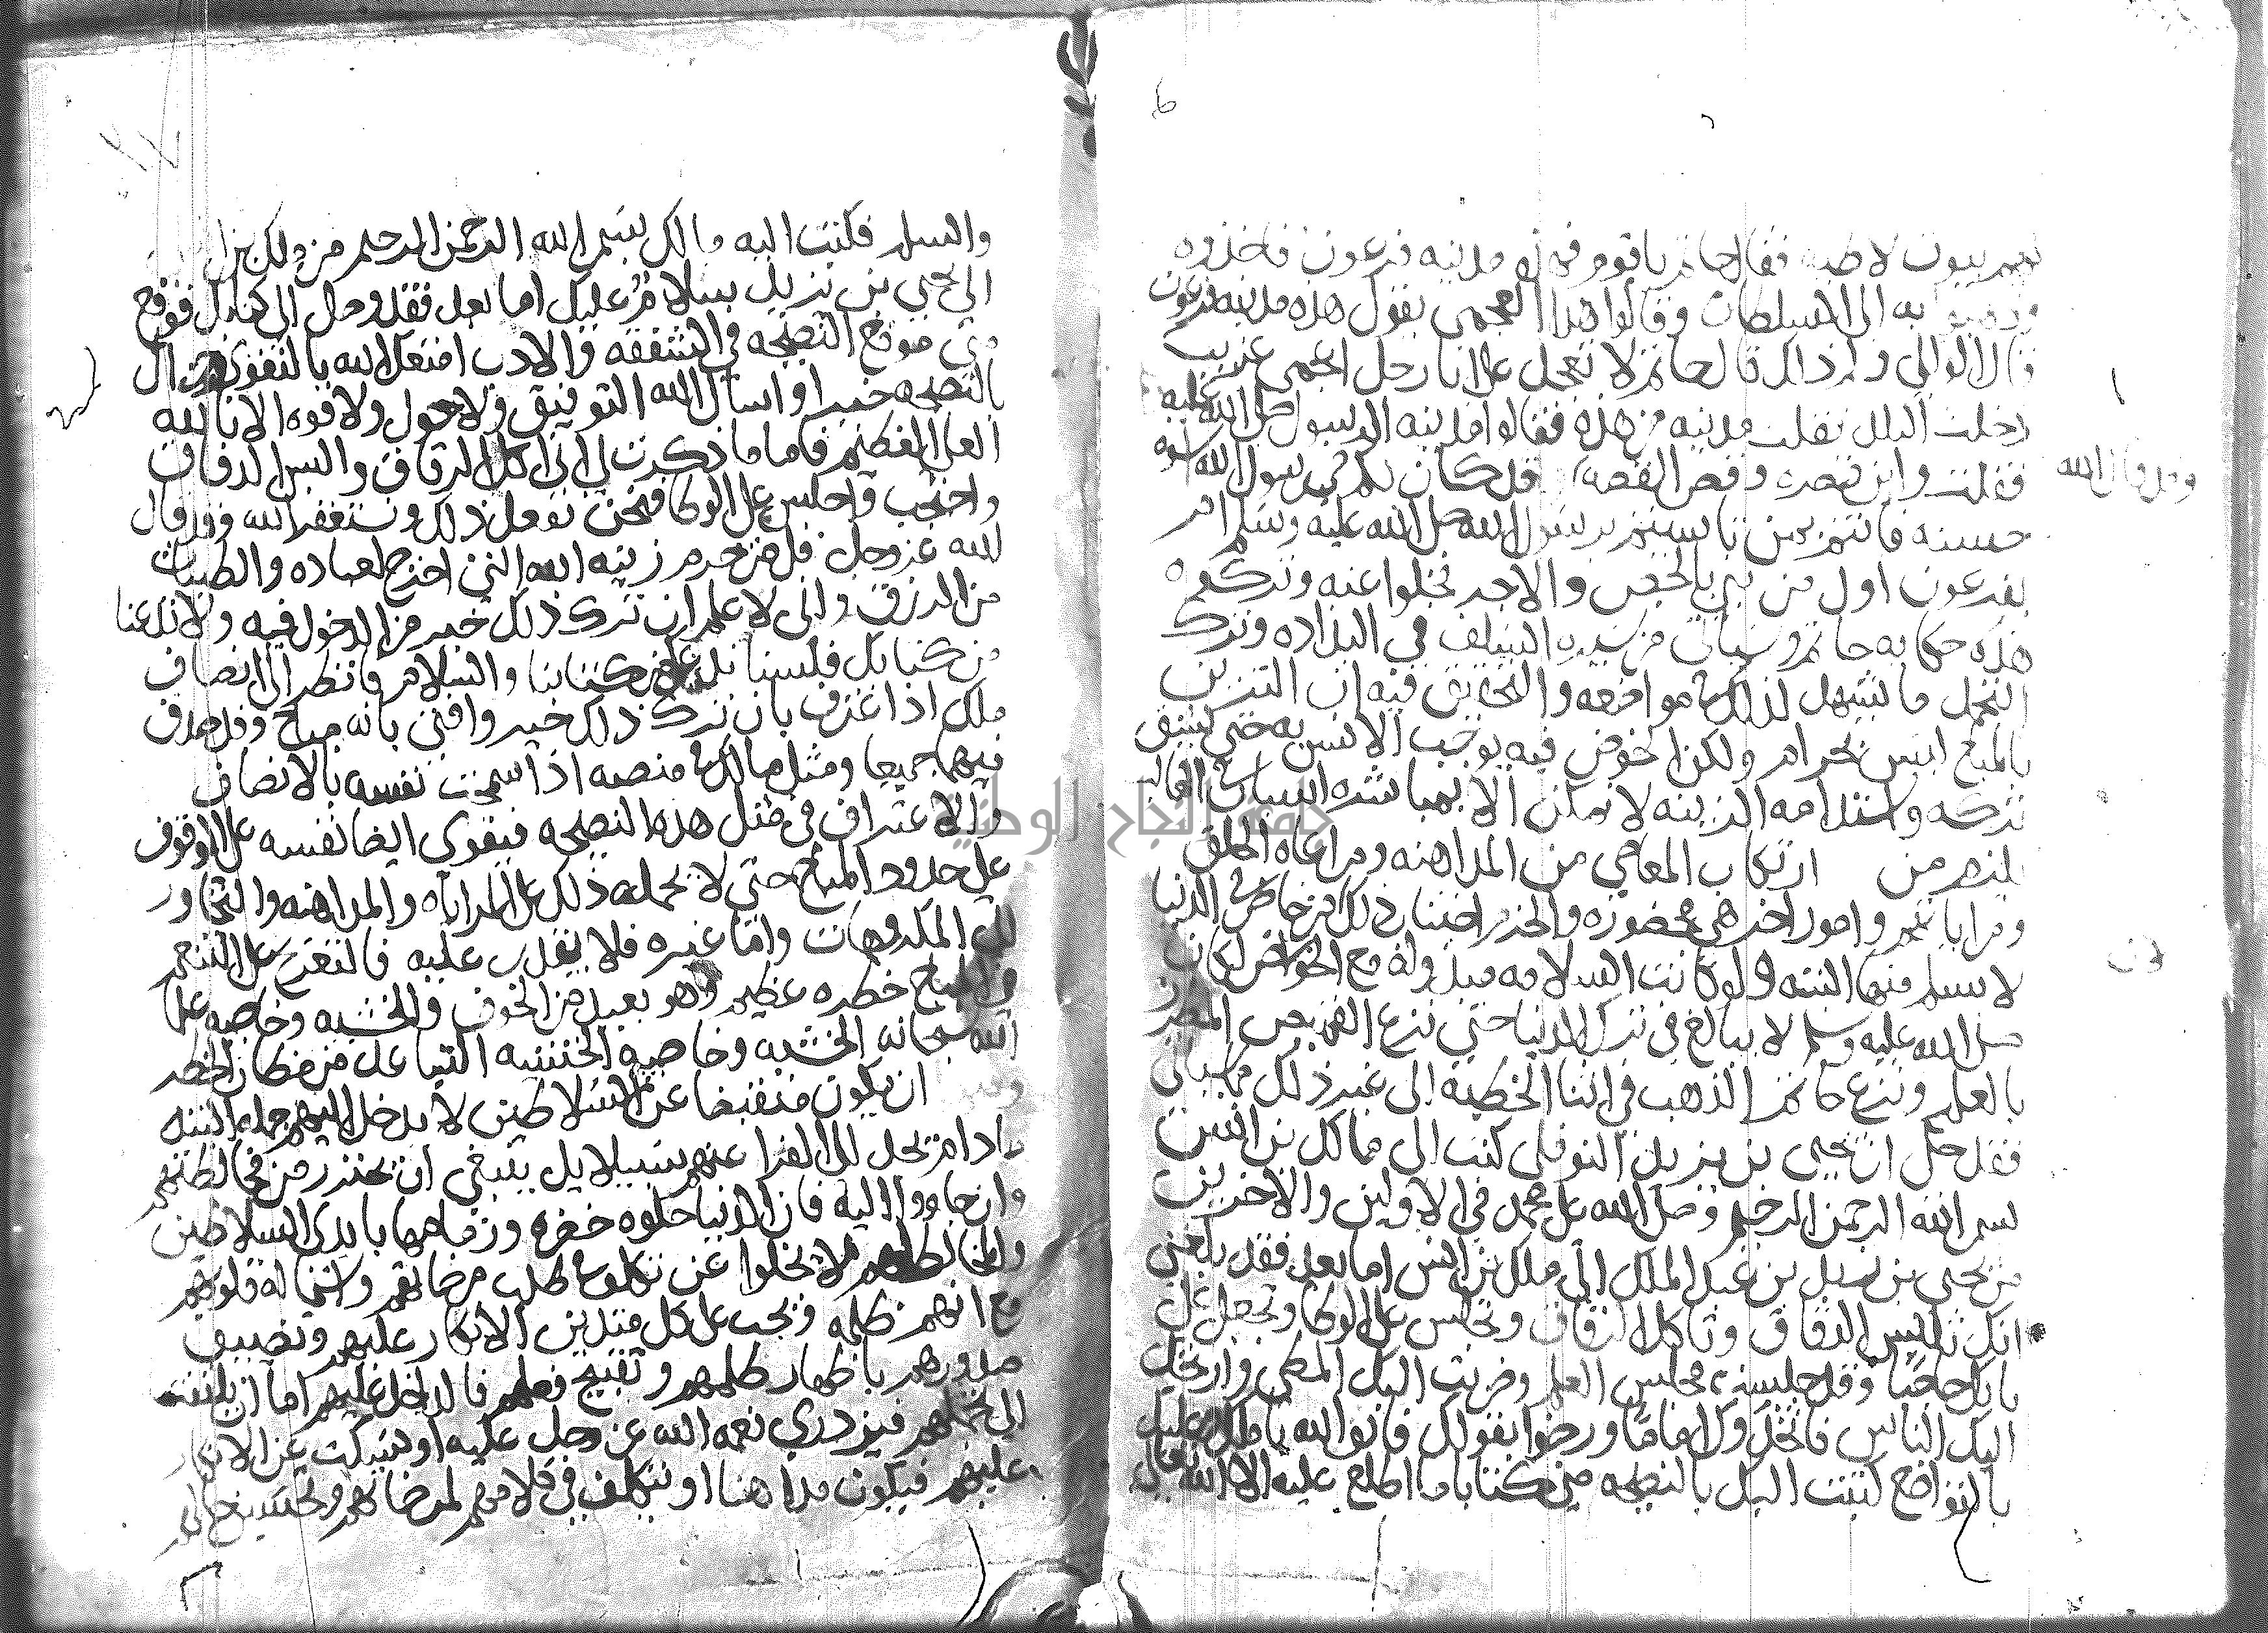 لهم بيوت لاطيه فقال حاتم يا قوم فهذه مدينه فرعون فاخذوه
وذهبوا به الى السلطان وقالوا هذا العجمي يقول هذه مدينه فرعون
قال الوالي ولم ذاك قال حاتم لا تعجل علي انا رجل اعجمي غريب
دخلت البلد فقلت مدينه من هذه فقالوا مدينه الرسول صلى الله عليه
فقلت واين قصره وقص القصه وقد قال الله لقد كان لكم في رسول الله اسوه
حسنه فانتم بمن تاسيتم برسول الله صلى الله عليه وسلم ام
بفرعون اول من بنى بالجص والاجر فخلوا عنه وتركوه
فهذه حكايه حاتم وسياتي من سيره السلف في البذاذه وترك
التجمل ما يشهد لذلك في مواضعه والتحقيق فيه ان التزين
بالمباح ليس بحرام ولكن الخوض فيه يوجب الانس به حتى يشق
تركه واستدامه الزينه لا تمكن الا بمباشره اسباب في الغالب
يلزم من ارتكاب المعاصي من المداهنه ومراعاه الخلق
ومراياتهم وامور اخر هي محضوره والحزم اجتناب ذلك من خاض في الدنيا
لا يسلم منها البته ولو كانت السلامه مبذوله مع الخوض لكان
صلى الله عليه وسلم لا يبالغ في ترك الدنيا حتى نزع القميص المطرز
بالعلم ونزع خاتم الذهب في اثنا الخطبه الى غير ذلك مما سياتي
فقد حكي ان يحيى بن يزيد النوفلي كتب الى مالك بن انس
بسم الله الرحمن الرحيم وصلى الله على محمد في الاولين والاخرين
من يحيى بن يزيد بن عبد الملك الى ملك بن انس اما بعد فقد بلغني
انك تلبس الدقاق وتاكل الرقاق وتجلس على الوطا وتجعل على
بابك حاجبا وقد جلست مجلس العلم وضربت اليك المطي وارتحل
اليك الناس فاتخذوك اماما ورضوا بقولك فاتق الله يا ملك وعليك
بالتواضع كتبت اليك بالنصيحه مني كتابا ما اطلع عليه الا الله تعالى
والسلم فكتب اليه مالك بسم الله الرحمن الرحيم من ملك بن انس
الى يحيى بن يزيد سلام عليك اما بعد فقد وصل الي كتابك فوقع
مني موقع النصيحه في الشفقه والادب امتعك الله بالتقوى وجزاك
بالنصيحه خيرا واسال الله التوفيق ولا حول ولا قوه الا بالله
العلي العظيم فاما ما ذكرت لي اني اكل الرقاق والبس الدقاق
واحتجب واجلس على الوطا فنحن نفعل ذلك ونستغفر الله وقد قال
الله عز وجل قل من حرم زينه الله التي اخرج لعباده والطيبات
من الرزق واني لاعلم ان ترك ذلك خير من الدخول فيه ولا تدعنا
من كتابك فلسنا ندعك من كتابنا والسلام فانظر الى انصاف
ملك اذا اعترف بان ترك ذلك خير وافتى بانه مباح وقد صدق
فيهما جميعا ومثل مالك في منصبه اذا سمحت نفسه بالانصاف
والاعتراف في مثل هذه النصيحه فيقوى ايضا نفسه على الوقوف
على حدود المباح حتى لا يحمله ذلك على المراياه والمداهنه والتجاوز
الى المكروهات واما غيره فلا يقدر عليه فالتعرج على التنعم
في المباح خطره عظيم وهو بعيد من الخوف والخشيه وخاصيه علما
الله سبحانه الخشيه وخاصيه الخشيه التباعد من مظان الخطر
ان يكون منقبضا عن السلاطين لا يدخل اليهم جمله البته
مادام يجد الى الفرار عنهم سبيلا بل ينبغي ان يحترز من مخالطتهم
وان جاووا اليه فان الدنيا حلوه خضره وزمامها بايدي السلاطين
والمخالط لهم لا يخلوا عن تكلف في طلب مرضاتهم واستماله قلوبهم
مع انهم ظلمه ويجب على كل متدين الانكار عليهم وتضييق
صدورهم باظهار ظلمهم وتقبيح فعلهم فالداخل عليهم اما ان يلتفت
الى تجملهم فيزدري نعمه الله عز وجل عليه او يسكت عن الانكار
عليهم فيكون مداهنا او يتكلف في كلامهم لمرضاتهم وتحسين حالهم
جامعة النجاح الوطنية